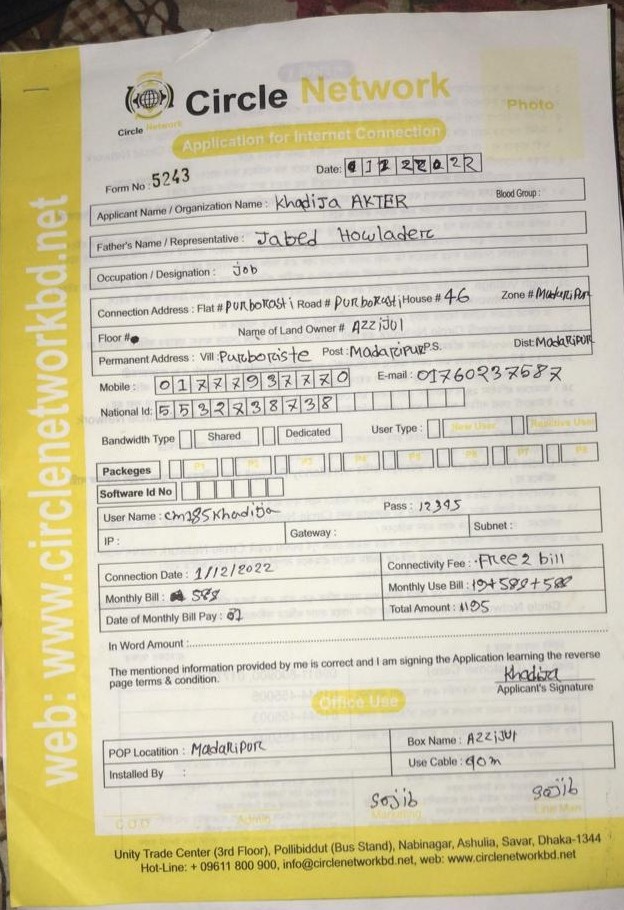 Circle Network
Circle Network
Photo
Application for Internet Connection
web: www.circlenetworkbd.net
Form No : 5243
Date: 01122022
Applicant Name / Organization Name : Khadija AKTER
Blood Group :
Father's Name / Representative : Jabed Howlader
Occupation / Designation : Job
Connection Address : Flat # Purbokasti Road # Purbokasti House # 46 Zone # Madaripur
Floor # Name of Land Owner # AZZiJUl
Permanent Address : Vill : Purboriste Post : Madaripur P.S. Dist: MadaRipur
Mobile : 01777937770 E-mail : 01760237587
National Id: 5532738738
Bandwidth Type Shared Dedicated User Type : New User Reactive User
Packeges P1 P2 P3 P4 P5 P6 P7 P8
Software Id No
User Name : cm185Khadija Pass : 12345
IP : Gateway : Subnet :
Connection Date : 1/12/2022 Connectivity Fee : Free 2 bill
Monthly Bill : 588 Monthly Use Bill : 19+588+588
Date of Monthly Bill Pay : 01 Total Amount : 1195
In Word Amount :
The mentioned information provided by me is correct and I am signing the Application learning the reverse
page terms & condition.
Khadija
Applicant's Signature
Office Use
POP Locatition : MadaRipur Box Name : AZZiJUl
Installed By : Use Cable : 90m
Sojib Sojib
C.O.O Admin Marketing Line Man
Unity Trade Center (3rd Floor), Pollibiddut (Bus Stand), Nabinagar, Ashulia, Savar, Dhaka-1344
Hot-Line: + 09611 800 900, info@circlenetworkbd.net, web: www.circlenetworkbd.net